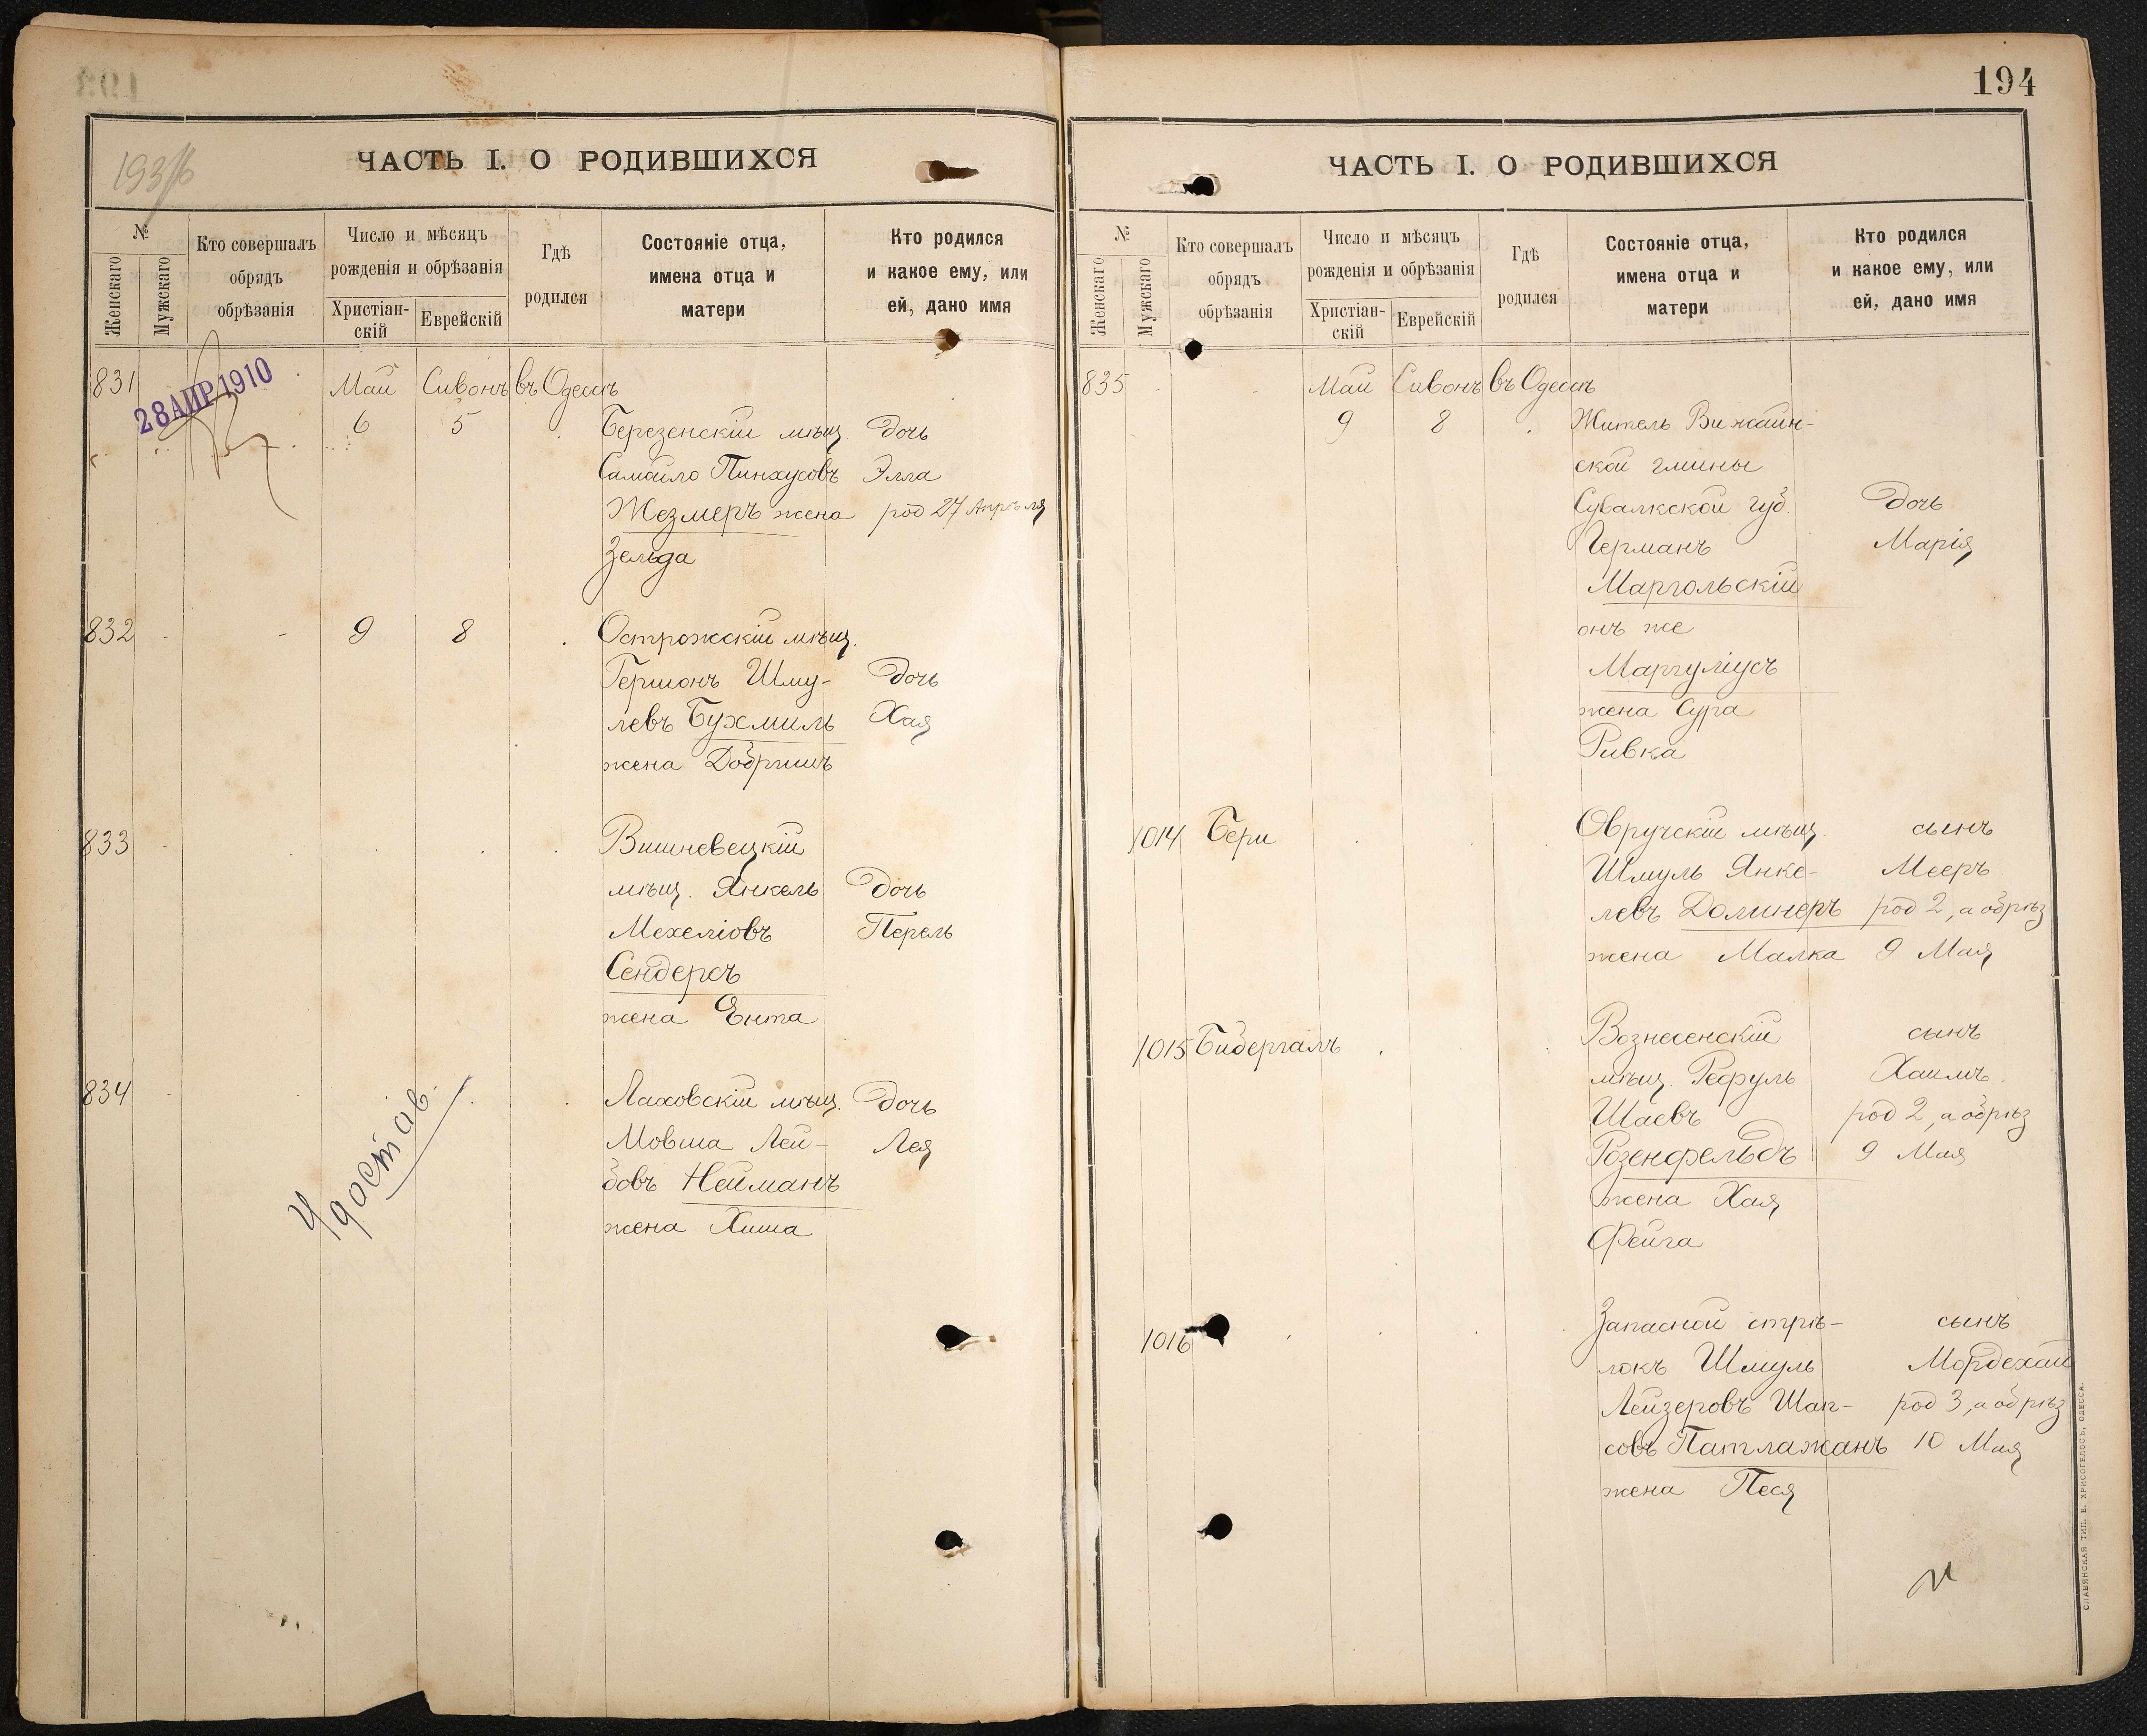 193
ЧАСТЬ I. О РОДИВШИХСЯ
№
Женскаго
Мужскаго
Кто совершалъ
обрядъ
обрѣзанія
Число и мѣсяцъ
рожденія и обрѣзанія
Христіан-
скій
Еврейскій
Гдѣ
родился
Состояніе отца,
имена отца и
матери
Кто родился
и какое ему, или
ей, дано имя
831 Май Сивонъ въ Одессѣ
28 АПР 1910
6 5 Березенскій мѣщ. дочь
Самойло Пинхусовъ Элла
Жезмеръ жена род 27 Апрѣля
Зельда
832 9 8 Острожскій мѣщ.
Гершонъ Шму- дочь
левъ Бухмиль Хая
жена Добришъ
833 Вишневецкій
мѣщ. Янкель дочь
Мехеліовъ Перель
Сендерсъ
жена Ента
834 Лаховскій мѣщ. дочь
Мовша Лей- Лея
бовъ Нейманъ
жена Хиша
достав.
194
ЧАСТЬ I. О РОДИВШИХСЯ
№
Женскаго
Мужскаго
Кто совершалъ
обрядъ
обрѣзанія
Число и мѣсяцъ
рожденія и обрѣзанія
Христіан-
скій
Еврейскій
Гдѣ
родился
Состояніе отца,
имена отца и
матери
Кто родился
и какое ему, или
ей, дано имя
835 Май Сивонъ въ Одессѣ
9 8 Житель Вижайн-
ской гмины
Сувалкской губ. дочь
Германъ Марія
Маргольскій
онъ же
Маргуліусъ
жена Сура
Ривка
1014 Бери Овручскій мѣщ. сынъ
Шмуль Янке- Мееръ
левъ Долинеръ род 2, а обрѣз
жена Малка 9 Мая
1015 Бидергалъ Вознесенскій сынъ
мѣщ. Рефуль Хаимъ
Шаевъ род 2, а обрѣз
Розенфельдъ 9 Мая
жена Хая
Фейга
1016 Запасной стрѣ- сынъ
локъ Шмуль Мордехай
Лейзеровъ Шап- род 3, а обрѣз
совъ Патлажанъ 10 Мая
жена Песя
СЛАВЯНСКАЯ ТИП. Е. ХРИСОГЕЛОСЪ, ОДЕССА.